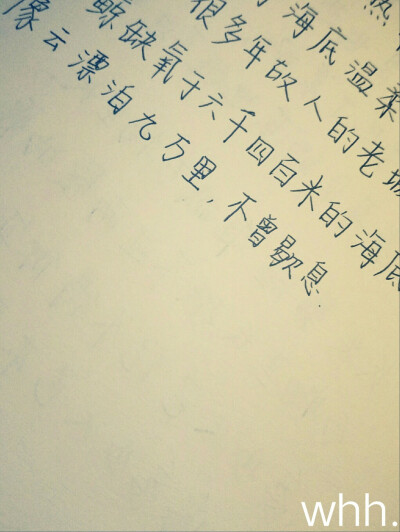 热
海底温柔
很多年故人的老城
鲸缺氧于六千四百米的海底
像云漂泊九万里,不曾歇息.
whh.